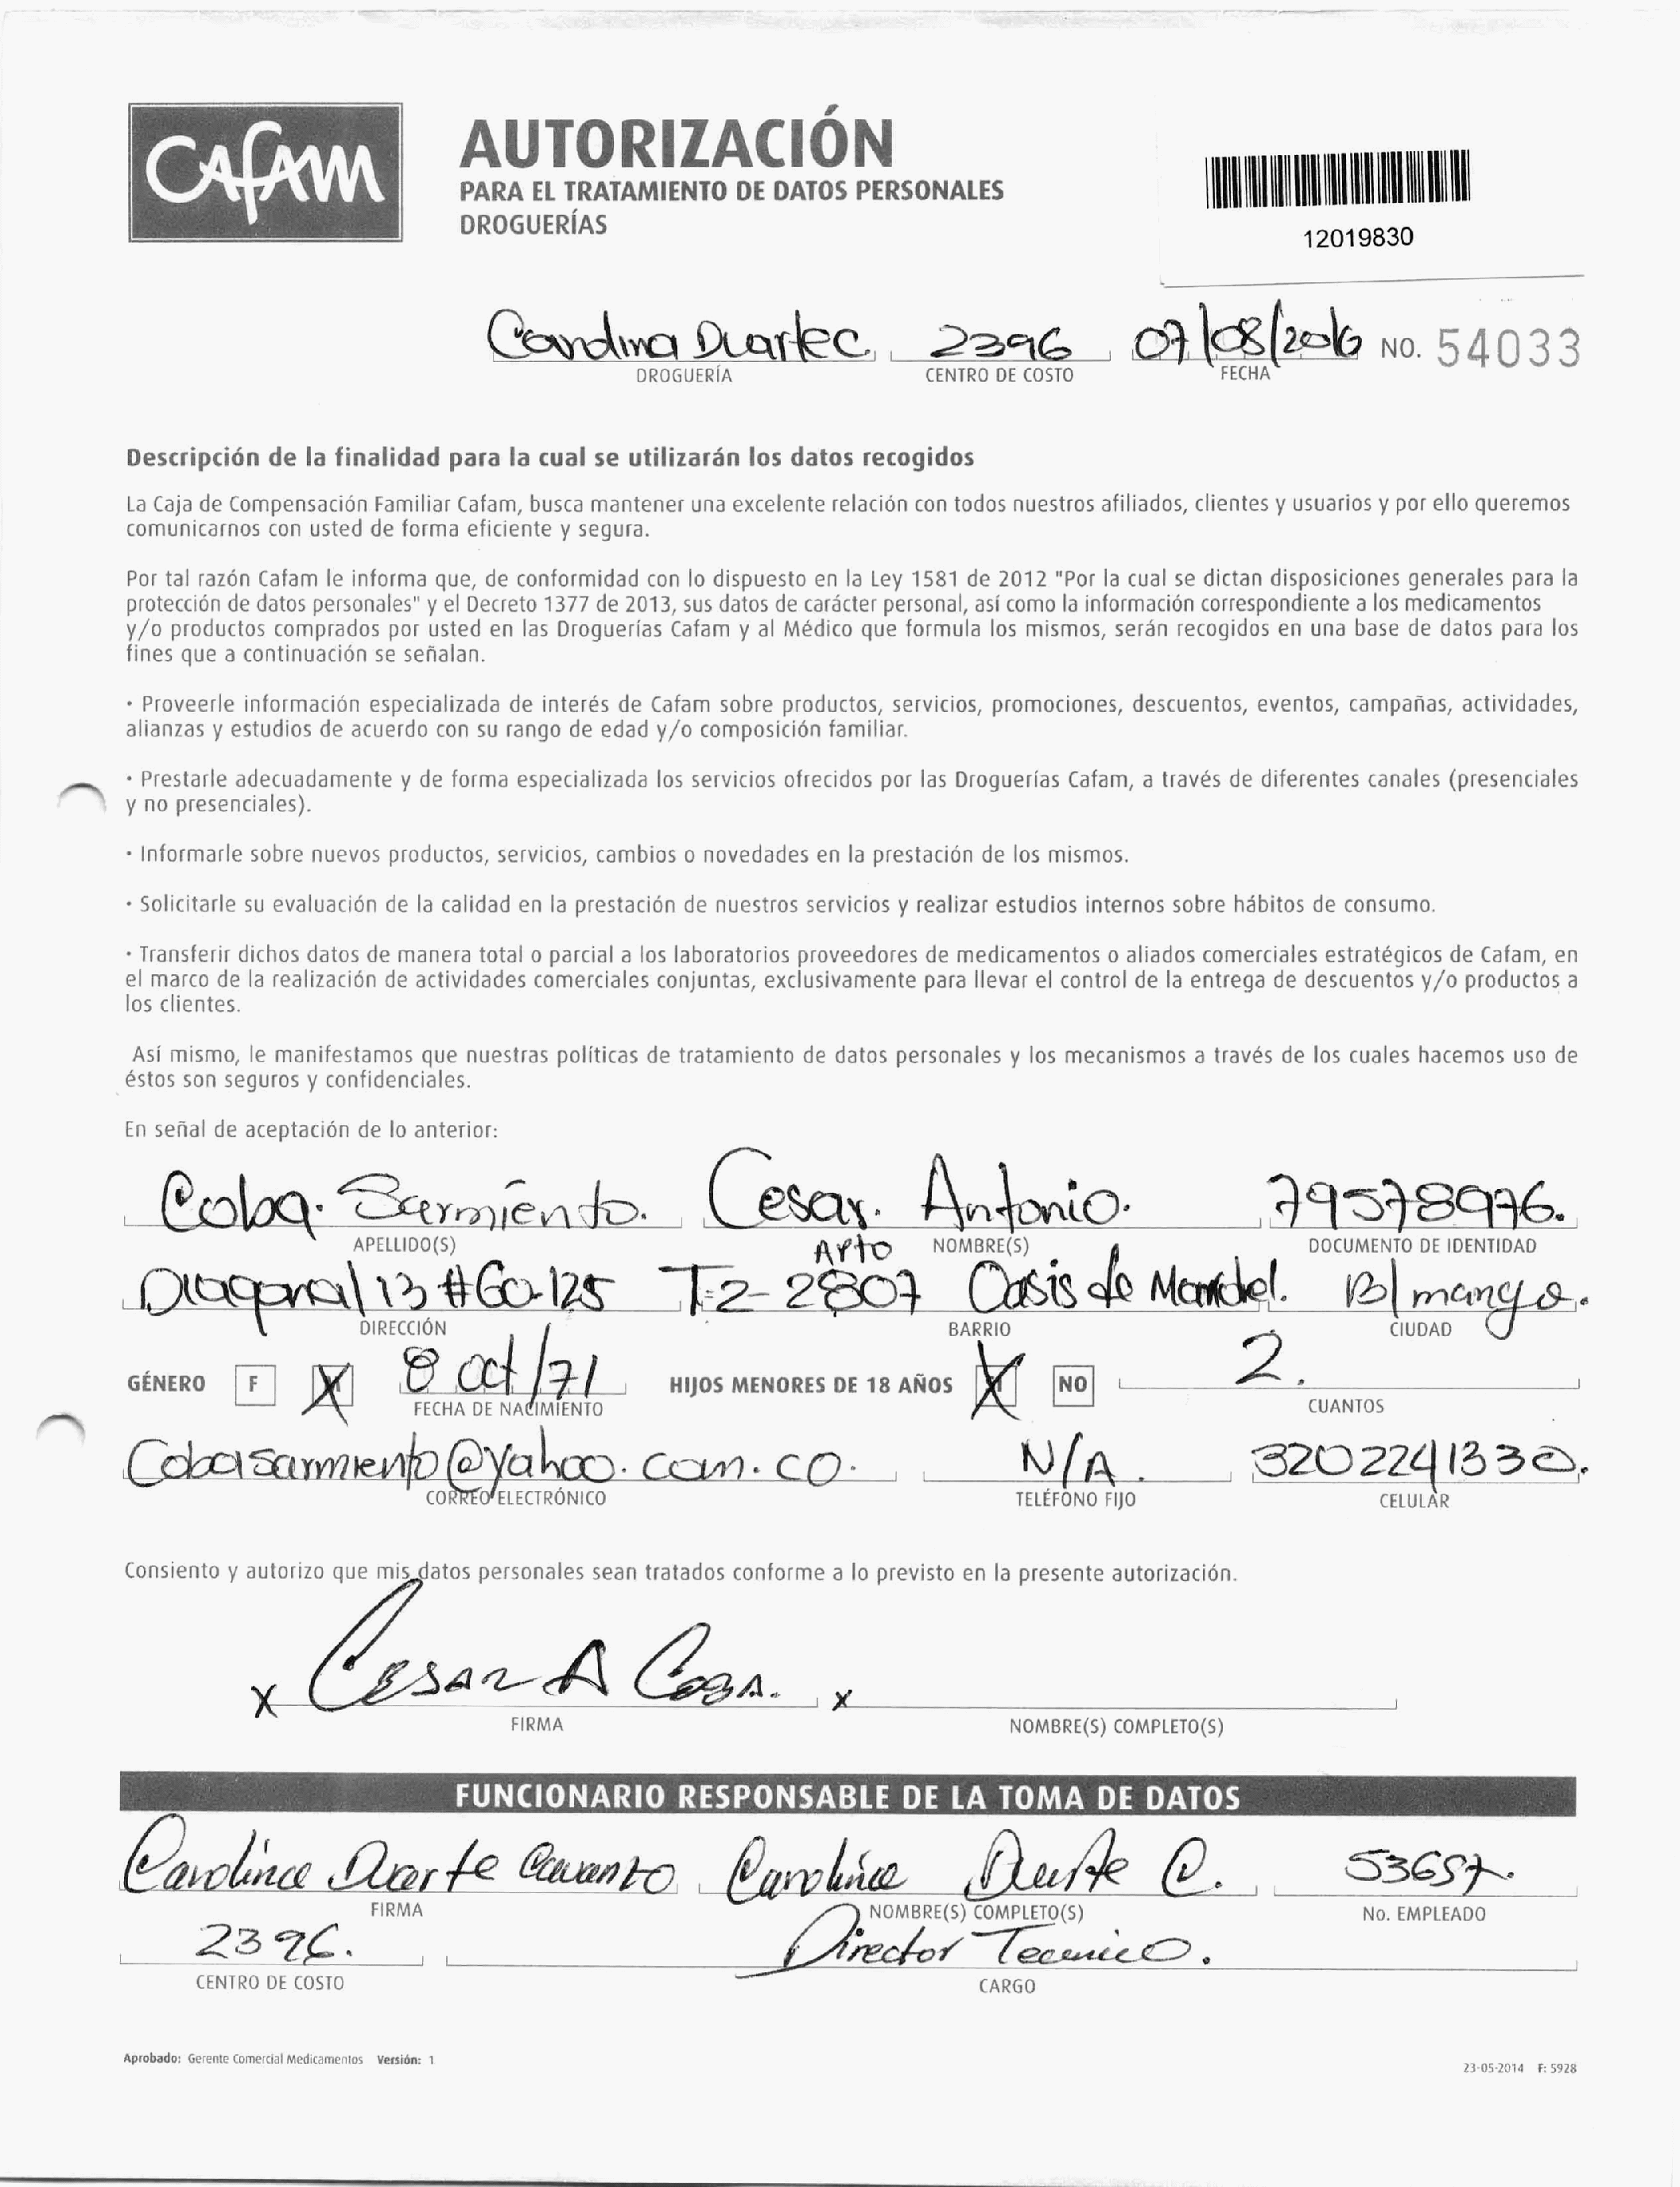 Cafam
AUTORIZACIÓN
PARA EL TRATAMIENTO DE DATOS PERSONALES
DROGUERÍAS
12019830
Carolina Duarte C. 2396 07/08/2016 NO. 54033
DROGUERÍA CENTRO DE COSTO FECHA
Descripción de la finalidad para la cual se utilizarán los datos recogidos
La Caja de Compensación Familiar Cafam, busca mantener una excelente relación con todos nuestros afiliados, clientes y usuarios y por ello queremos
comunicarnos con usted de forma eficiente y segura.
Por tal razón Cafam le informa que, de conformidad con lo dispuesto en la Ley 1581 de 2012 "Por la cual se dictan disposiciones generales para la
protección de datos personales" y el Decreto 1377 de 2013, sus datos de carácter personal, así como la información correspondiente a los medicamentos
y/o productos comprados por usted en las Droguerías Cafam y al Médico que formula los mismos, serán recogidos en una base de datos para los
fines que a continuación se señalan.
· Proveerle información especializada de interés de Cafam sobre productos, servicios, promociones, descuentos, eventos, campañas, actividades,
alianzas y estudios de acuerdo con su rango de edad y/o composición familiar.
· Prestarle adecuadamente y de forma especializada los servicios ofrecidos por las Droguerías Cafam, a través de diferentes canales (presenciales
y no presenciales).
· Informarle sobre nuevos productos, servicios, cambios o novedades en la prestación de los mismos.
· Solicitarle su evaluación de la calidad en la prestación de nuestros servicios y realizar estudios internos sobre hábitos de consumo.
· Transferir dichos datos de manera total o parcial a los laboratorios proveedores de medicamentos o aliados comerciales estratégicos de Cafam, en
el marco de la realización de actividades comerciales conjuntas, exclusivamente para llevar el control de la entrega de descuentos y/o productos a
los clientes.
Así mismo, le manifestamos que nuestras políticas de tratamiento de datos personales y los mecanismos a través de los cuales hacemos uso de
éstos son seguros y confidenciales.
En señal de aceptación de lo anterior:
Coba. Sarmiento. Cesar. Antonio. 79578976.
APELLIDO(S) NOMBRE(S) DOCUMENTO DE IDENTIDAD
Apto
Diagonal 13 #60-125 T-2-2807 Oasis de B/manga.
DIRECCIÓN BARRIO CIUDAD
GÉNERO F X 8 oct/71 HIJOS MENORES DE 18 AÑOS X NO 2.
FECHA DE NACIMIENTO CUANTOS
Cobasarmiento@yahoo.com.co. N/A. 3202241330.
CORREO ELECTRÓNICO TELÉFONO FIJO CELULAR
Consiento y autorizo que mis datos personales sean tratados conforme a lo previsto en la presente autorización.
x Cesar A Coba. x
FIRMA NOMBRE(S) COMPLETO(S)
FUNCIONARIO RESPONSABLE DE LA TOMA DE DATOS
Carolina Duarte Carolina Duarte C. 53657.
FIRMA NOMBRE(S) COMPLETO(S) No. EMPLEADO
2396. Director Tecnico.
CENTRO DE COSTO CARGO
Aprobado: Gerente Comercial Medicamentos Versión: 1
23-05-2014 F: 5928